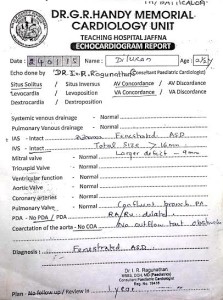 DR.G.R.HANDY MEMORIAL
CARDIOLOGY UNIT
TEACHING HOSPITAL JAFFNA
ECHOCARDIOGRAM REPORT
Date : Name : Age :
Echo done by DR.I.R.Ragunathan (Consultant Paediatric Cardiologist)
Situs Solitus / Situs inversus AV Concordance / AV Discordance
Levocardia / Levoposition VA Concordance / VA Discordance
Dextrocardia / Dextroposition
Systemic venous drainage - Normal
Pulmonary Venous drainage - Normal
IAS - Intact Fenestrated ASD
IVS - Intact Total Size > 16mm
Mitral valve - Normal Larger defect - 9mm
Tricuspid Valve - Normal
Ventricular function - Normal
Aortic Valve - Normal
Coronary arteries - Normal
Pulmonary Valve - Normal Confluent branch PA
PDA - No PDA / PDA RA/RV dilated
Coarctation of the aorta - No COA No outflow tract obstruction
Diagnosis : Fenestrated ASD
Dr. I. R. Ragunathan
Plan - No follow up / Review in 1 year